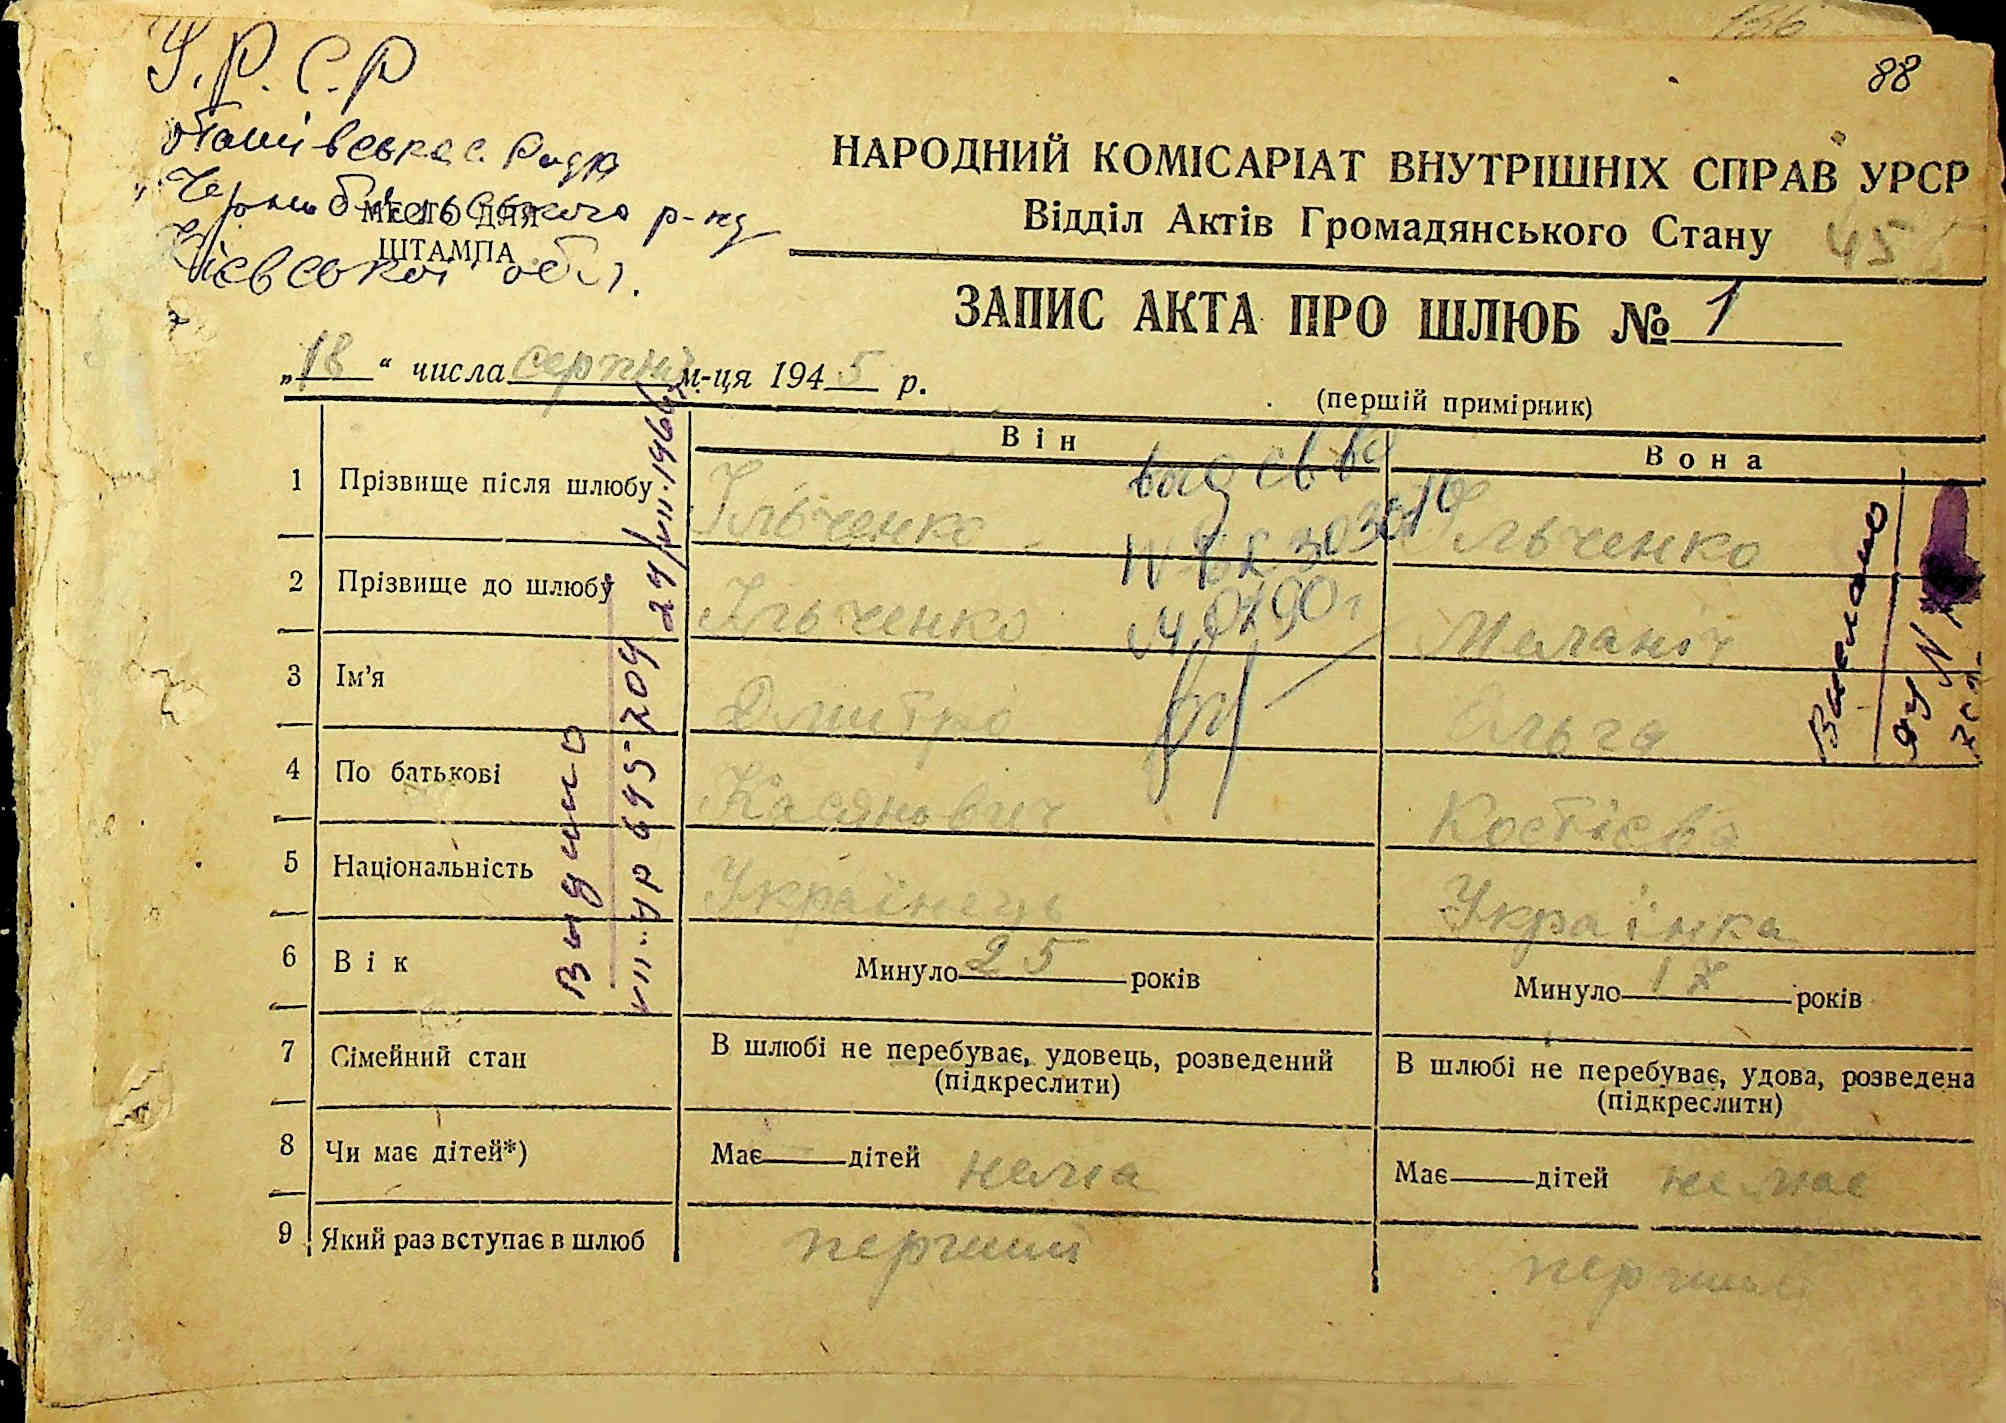 88
У.Р.С.Р
с. Рада
Чорнобильського р-ну
Київської обл.
МІСЦЕ ДЛЯ
ШТАМПА
НАРОДНИЙ КОМІСАРІАТ ВНУТРІШНІХ СПРАВ УРСР
Відділ Актів Громадянського Стану
45
ЗАПИС АКТА ПРО ШЛЮБ № 1
„18“ числа серпня м-ця 1945 р.
(першій примірник)
Він Вона
1 Прізвище після шлюбу Ільченко Ільченко
2 Прізвище до шлюбу Ільченко Меланіч
3 Ім'я Дмитро Ольга
4 По батькові Касянович Костієва
5 Національність Українець Українка
6 Вік Минуло 25 років Минуло 17 років
7 Сімейний стан В шлюбі не перебуває, удовець, розведений (підкреслити) В шлюбі не перебуває, удова, розведена (підкреслити)
8 Чи має дітей*) Має дітей нема Має дітей не має
9 Який раз вступає в шлюб перший перший
VII-УР 695209